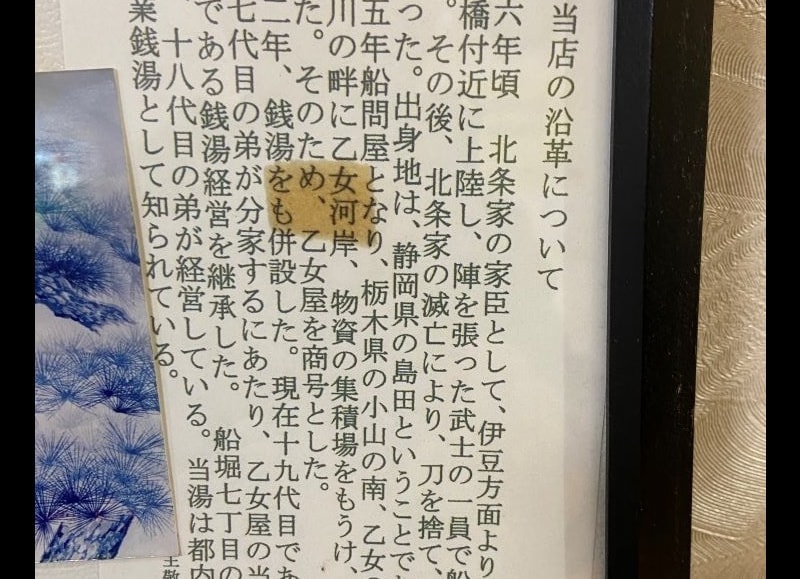 当店の沿革について
六年頃　北条家の家臣として、伊豆方面より
橋付近に上陸し、陣を張った武士の一員で船
。その後、北条家の滅亡により、刀を捨て、
った。出身地は、静岡県の島田ということで
五年船問屋となり、栃木県の小山の南、乙女の
川の畔に乙女河岸、物資の集積場をもうけ、
た。そのため、乙女屋を商号とした。
二年、銭湯をも併設した。現在十九代目であ
七代目の弟が分家するにあたり、乙女屋の当
である銭湯経営を継承した。　船堀七丁目の
、十八代目の弟が経営している。当湯は都内
業銭湯として知られている。